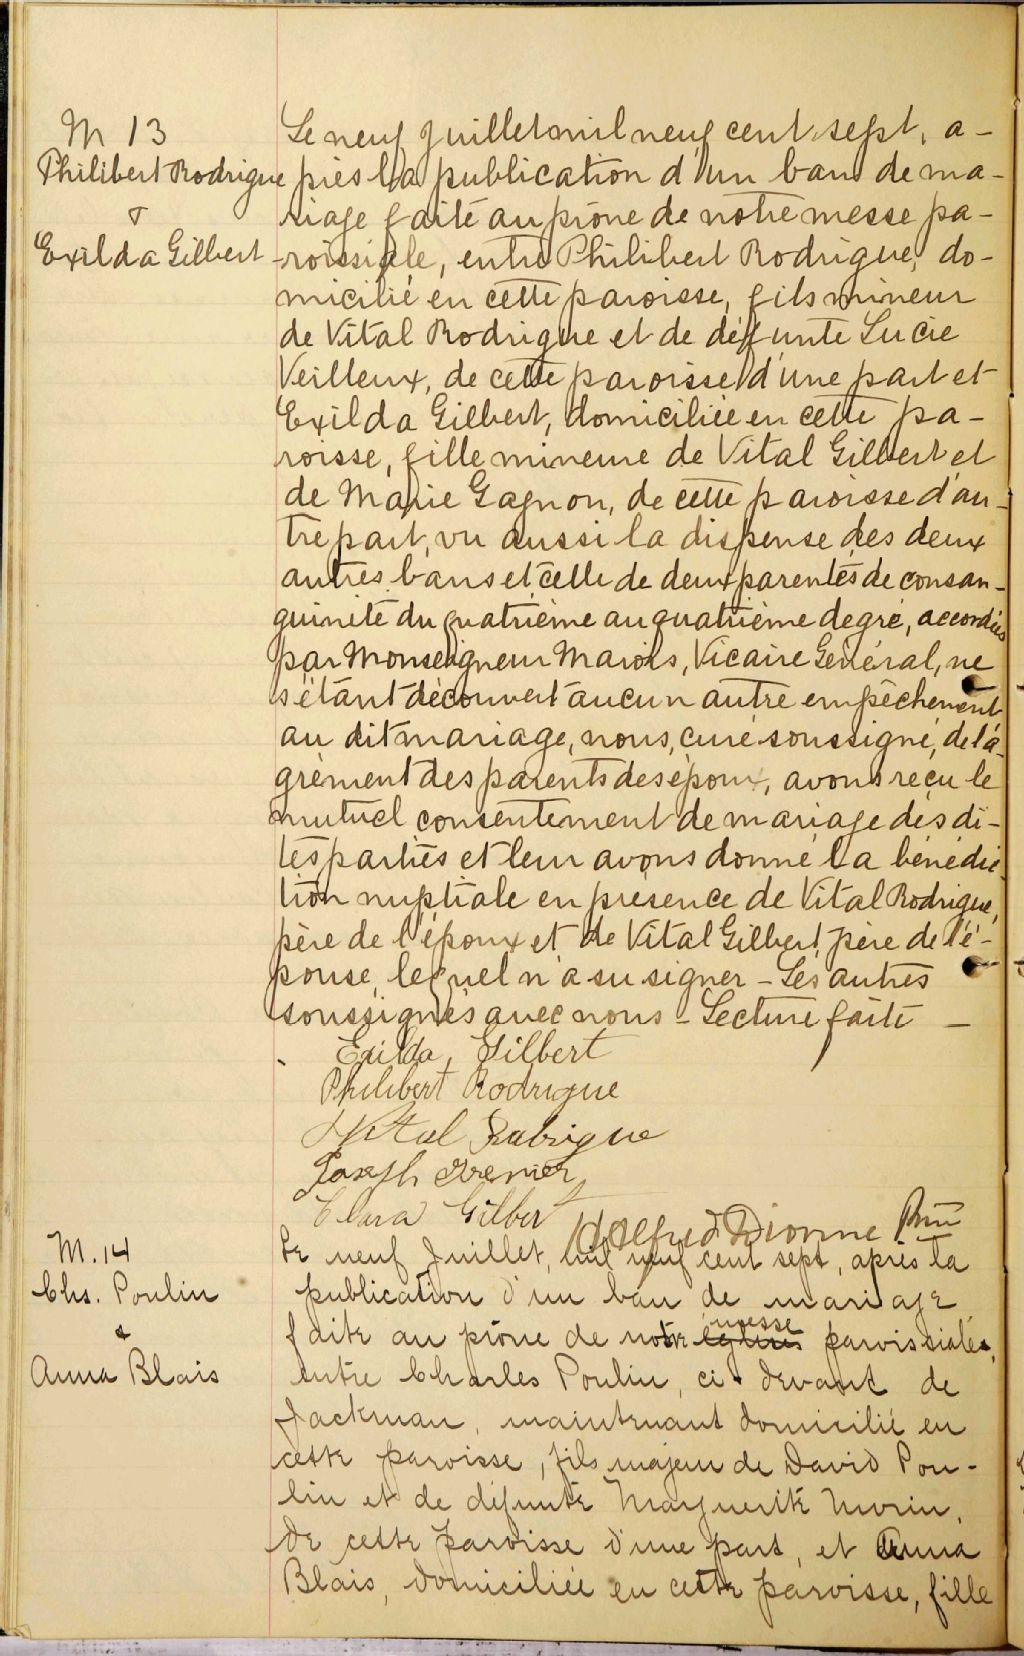 M 13
Philibert Rodrigue
&
Exilda Gilbert
Le neuf Juillet mil neuf cent sept, a-
près la publication d'un ban de ma-
riage faite au prône de notre messe pa-
roissiale, entre Philibert Rodrigue, do-
micilié en cette paroisse, fils mineur
de Vital Rodrigue et de défunte Lucie
Veilleux, de cette paroisse d'une part et
Exilda Gilbert, domiciliée en cette pa-
roisse, fille mineure de Vital Gilbert et
de Marie Gagnon, de cette paroisse d'au-
tre part, vu aussi la dispense des deux
autres bans et celle de deux parentés de consan-
guinité du quatrième au quatrième degré, accordées
par Monseigneur Marois, Vicaire Général, ne
s'étant découvert aucun autre empêchement
au dit mariage, nous, curé soussigné, de l'a-
grément des parents des époux, avons reçu le
mutuel consentement de mariage des di-
tes parties et leur avons donné la bénédic-
tion nuptiale en présence de Vital Rodrigue,
père de l'époux et de Vital Gilbert, père de l'é-
pouse, lequel n'a su signer - Les autres
soussignés avec nous - Lecture faite -
Exilda Gilbert
Philibert Rodrigue
Vital Rodrigue
Joseph Grenier
Clara Gilbert
J Alfred Dionne Ptre
M. 14
Chs. Poulin
&
Anna Blais
Le neuf Juillet, mil neuf cent sept, après la
publication d'un ban de mariage
faite au prône de notre messe paroissiale,
entre Charles Poulin, ci-devant de
Jackman, maintenant domicilié en
cette paroisse, fils majeur de David Pou-
lin et de défunte Marguerite Morin,
de cette paroisse d'une part, et Anna
Blais, domiciliée en cette paroisse, fille